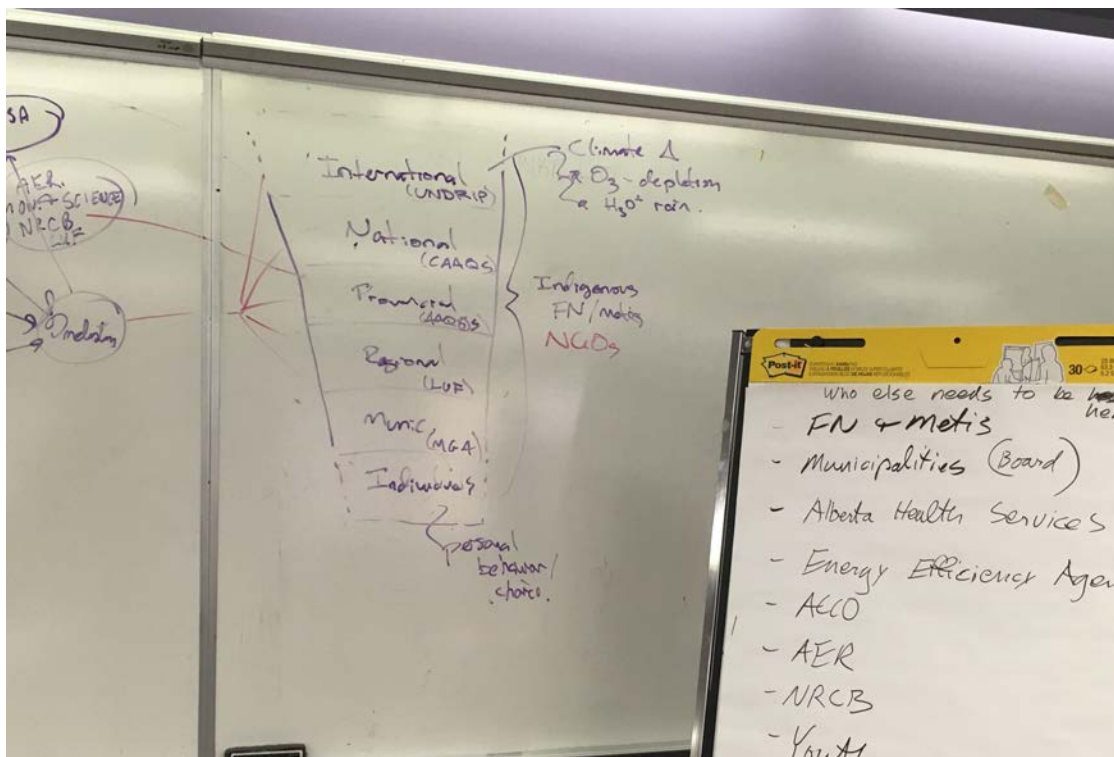 SA
AER
SCIENCE
NRCB
International
(UNDRIP)
National
(CAAQS)
Provincial
(AAQOs)
Regional
(LUF)
Munic
(MGA)
Individuals
personal
behavior/
choice.
Climate Δ
O₃-depletion
H₃O⁺ rain.
Indigenous
FN/metis
NGOs
Post-it
30
who else needs to be
- FN & Metis
- Municipalities (Board)
- Alberta Health Services
- Energy Efficiency Agen
- AECO
- AER
- NRCB
- Youth